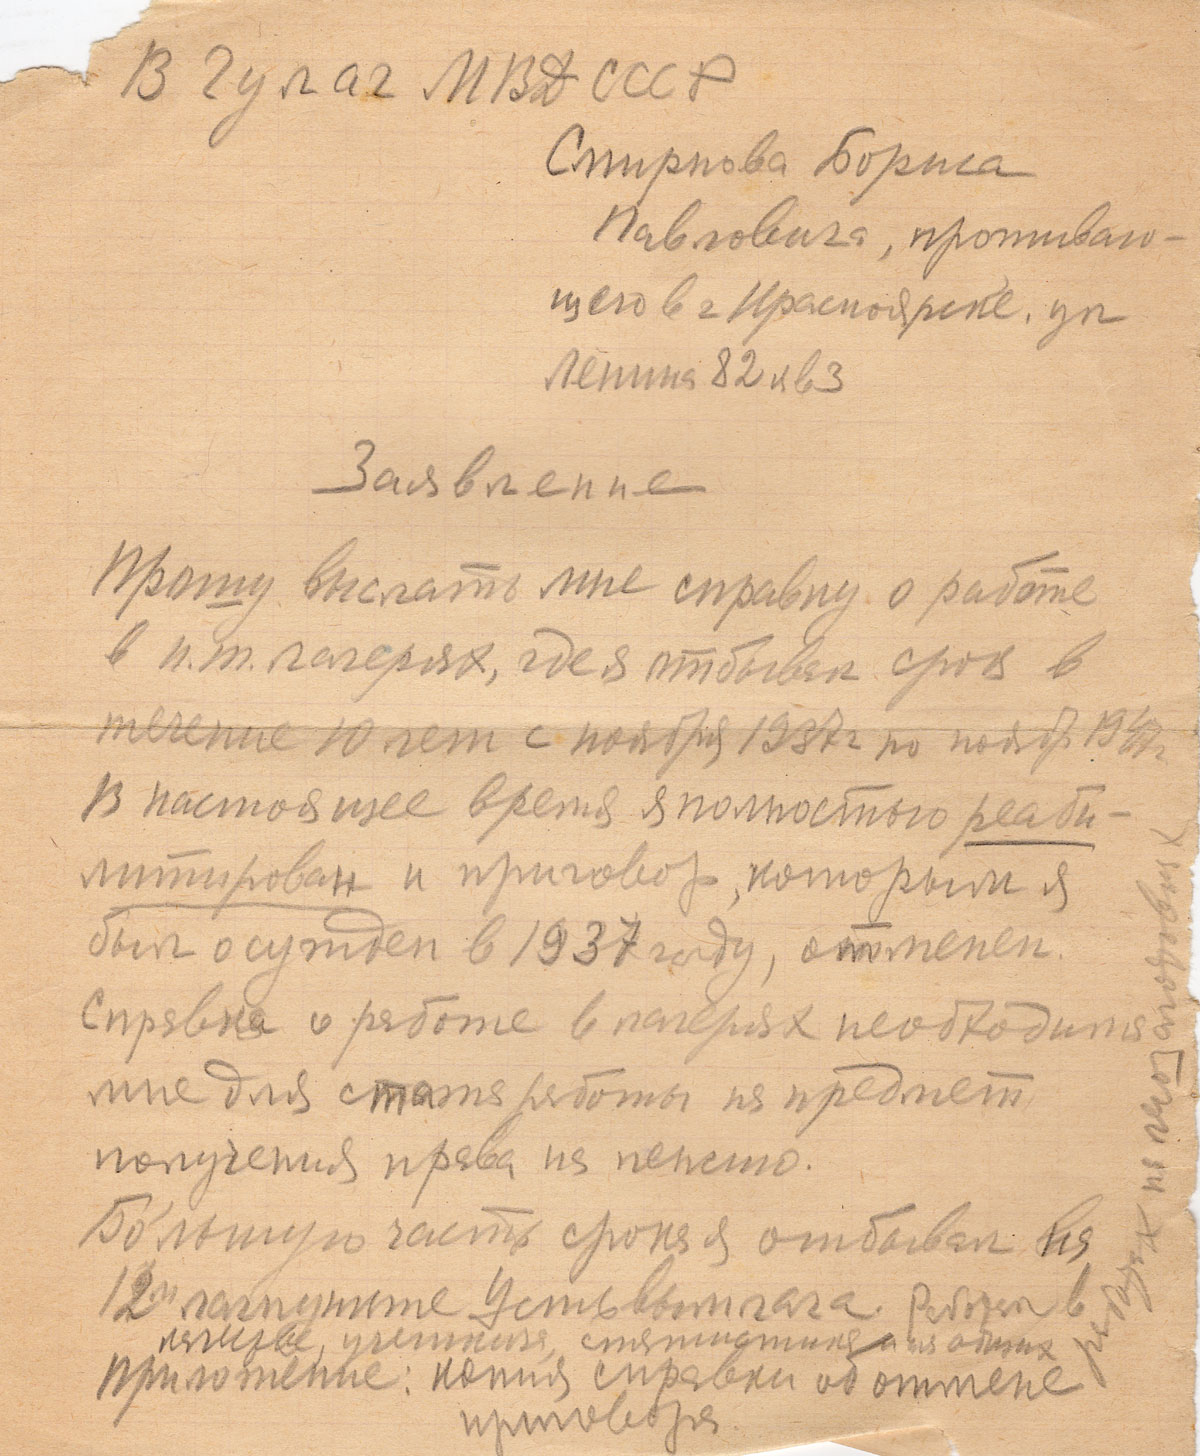 В Гулаг МВД СССР
Смирнова Бориса
Павловича, проживаю-
щего в г Красноярске. ул
Ленина 82 кв 3
Заявление
Прошу выслать мне справку о работе
в и.т. лагерях, где я отбывал срок в
течение 10 лет с ноября 1937 г по ноябр 1947 г
В настоящее время я полностью реаби-
литирован и приговор, которым я
был осужден в 1937 году, отменен.
Справка о работе в лагерях необходима
мне для стажа работы на предмет
получения права на пенсию.
Бо́льшую часть срока я отбывал на
12м лагпункте Устьвымлага. Работал в
качестве учетчика, статистика и на общих
работах на лесозаготовках
Приложение: копия справки об отмене
приговора.